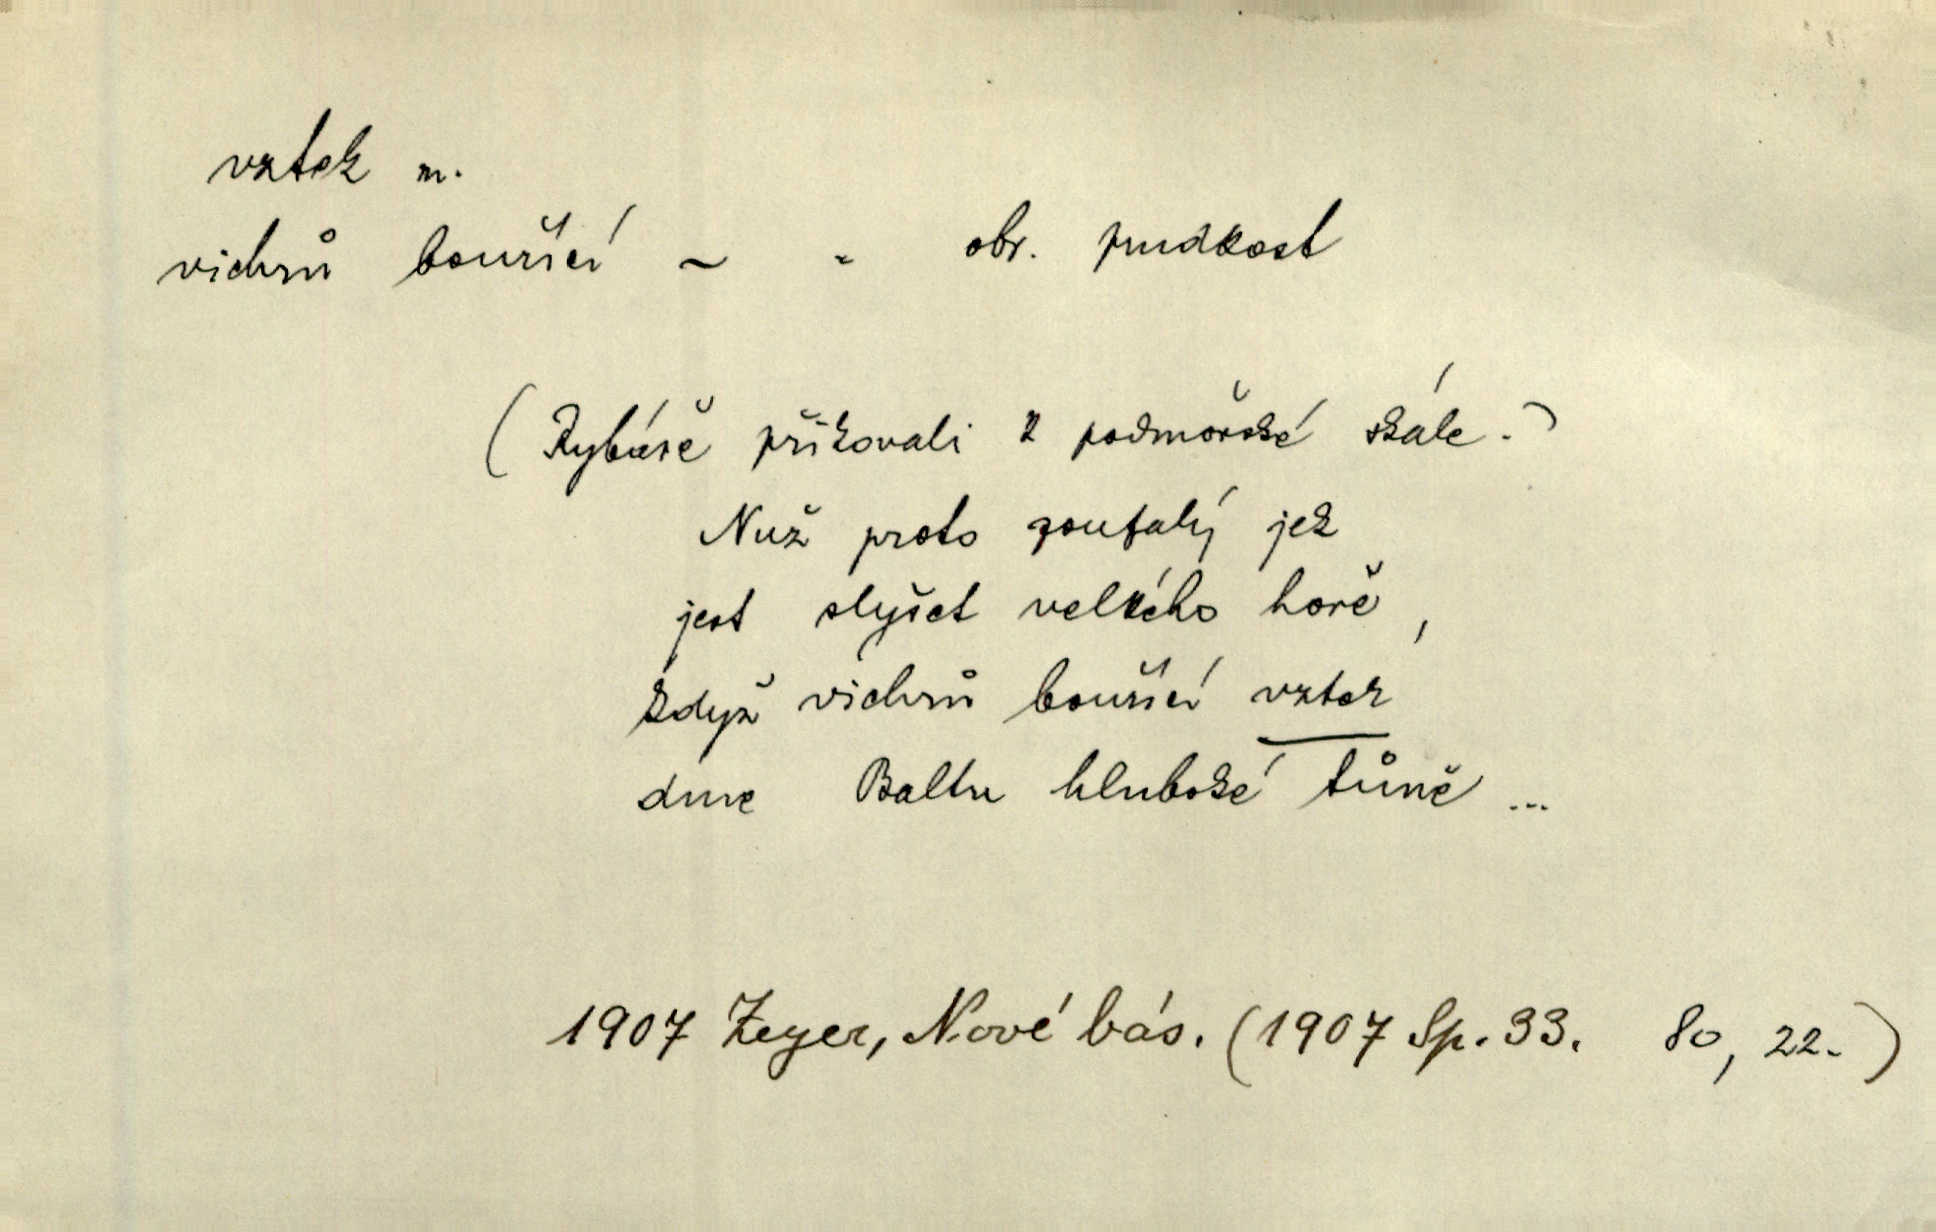 vztek m.
vichrů bouřící ~ - obr. prudkost
(Rybáře přikovali k podmořské skále.)
Nuž proto zoufalý jek
jest slyšet velkého hoře,
když vichrů bouřící vztek
dme Baltu hluboké tůně ...
1907 Zeyer, Nové bás. (1907 Sp. 33. 80, 22.)